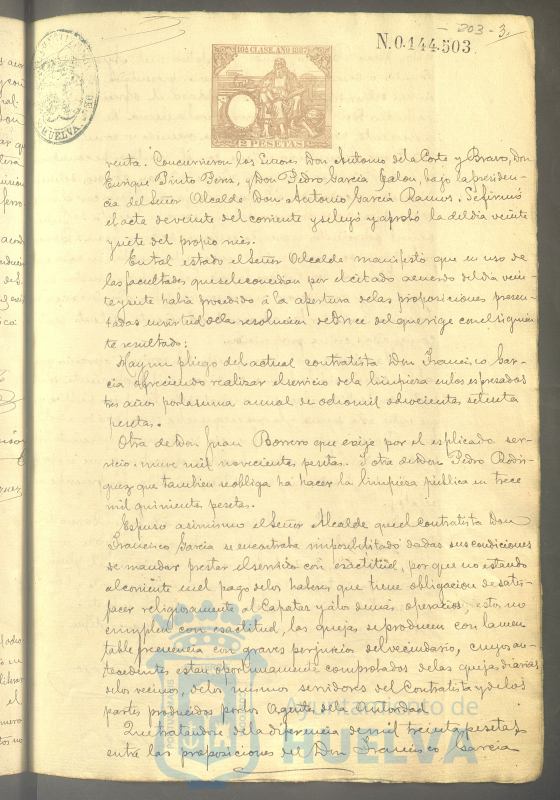 203-3.
N.0.144.503
10ª CLASE. AÑO 1887
2 PESETAS
HUELVA
venta. Concurrieron los Señores Don Antonio de la Corte y Bravo, Don
Enrique Pinto Perez, y Don Pedro Garcia Jalon, bajo la presiden-
cia del Señor Alcalde Don Antonio Garcia Ramos. Se firmó
el acta de veinte del corriente y se leyó y aprobó la del dia veinte
y siete del propio mes.
En tal estado el Señor Alcalde manifestó que en uso de
las facultades que se le concedian por el citado acuerdo del dia vein-
te y siete habia procedido á la apertura de las proposiciones presen-
tadas en virtud de la resolucion de trece del que rige con el siguien-
te resultado:
Hay un pliego del actual contratista Don Francisco Gar-
cia ofreciendo realizar el servicio de la limpieza en los espresados
tres años por la suma anual de ocho mil ochocientas setenta
pesetas.
Otra de Don Juan Borrero que exije por el esplicado ser-
vicio nueve mil novecientas pesetas. Y otra de Don Pedro Rodri-
guez que tambien se obliga ha hacer la limpieza pública en trece
mil quinientas pesetas.
Espuso asimismo el Señor Alcalde que el contratista Don
Francisco Garcia se encontraba imposibilitado dadas sus condiciones
de mandar prestar el servicio con exactitud, por que no estando
al corriente en el pago de los haberes que tiene obligacion de satis-
facer religiosamente al Capataz y á los demás operarios, estos no
cumplen con exactitud, las quejas se producen con lamen-
table frecuencia con graves perjuicios del vecindario, cuyos an-
tecedentes estan oportunamente comprobados de las quejas diarias
de los vecinos, de los mismos servidores del Contratista y de los
partes producidos por los Agentes de la autoridad.
Que tratandose de la diferencia de mil treinta pesetas
entre las proposiciones de Don Francisco Garcia
Ayuntamiento de
HUELVA